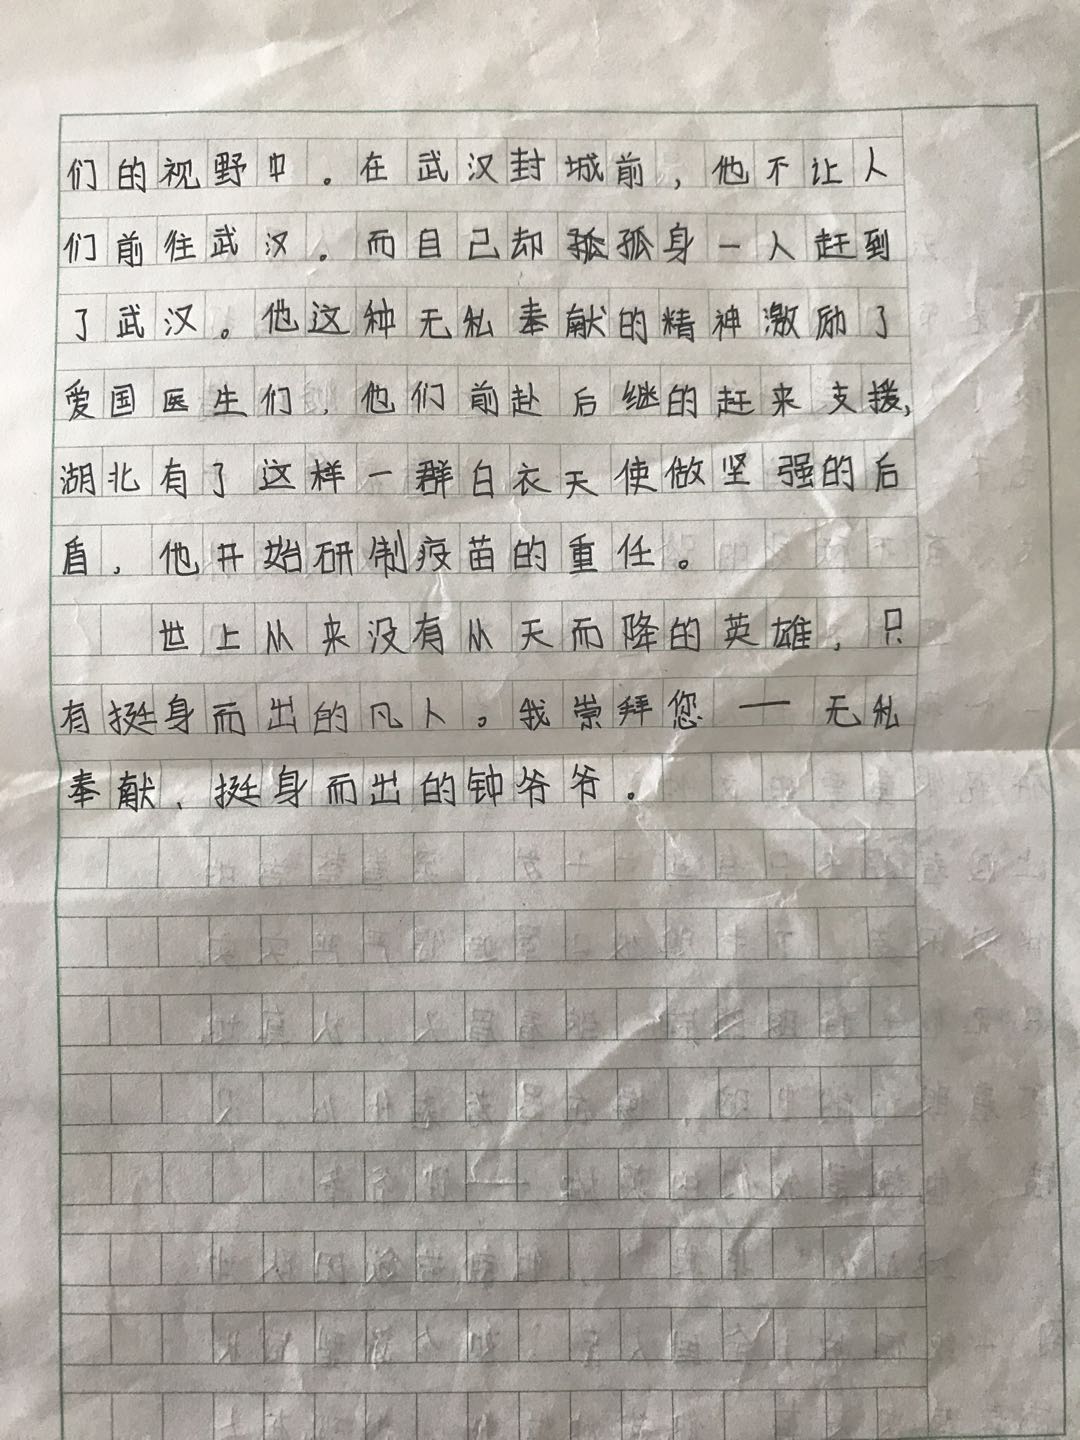 们的视野中。在武汉封城前，他不让人
们前往武汉。而自己却孤孤身一人赶到
了武汉。他这种无私奉献的精神激励了
爱国医生们，他们前赴后继的赶来支援，
湖北有了这样一群白衣天使做坚强的后
盾，他开始研制疫苗的重任。
世上从来没有从天而降的英雄，只
有挺身而出的凡人。我崇拜您——无私
奉献、挺身而出的钟爷爷。